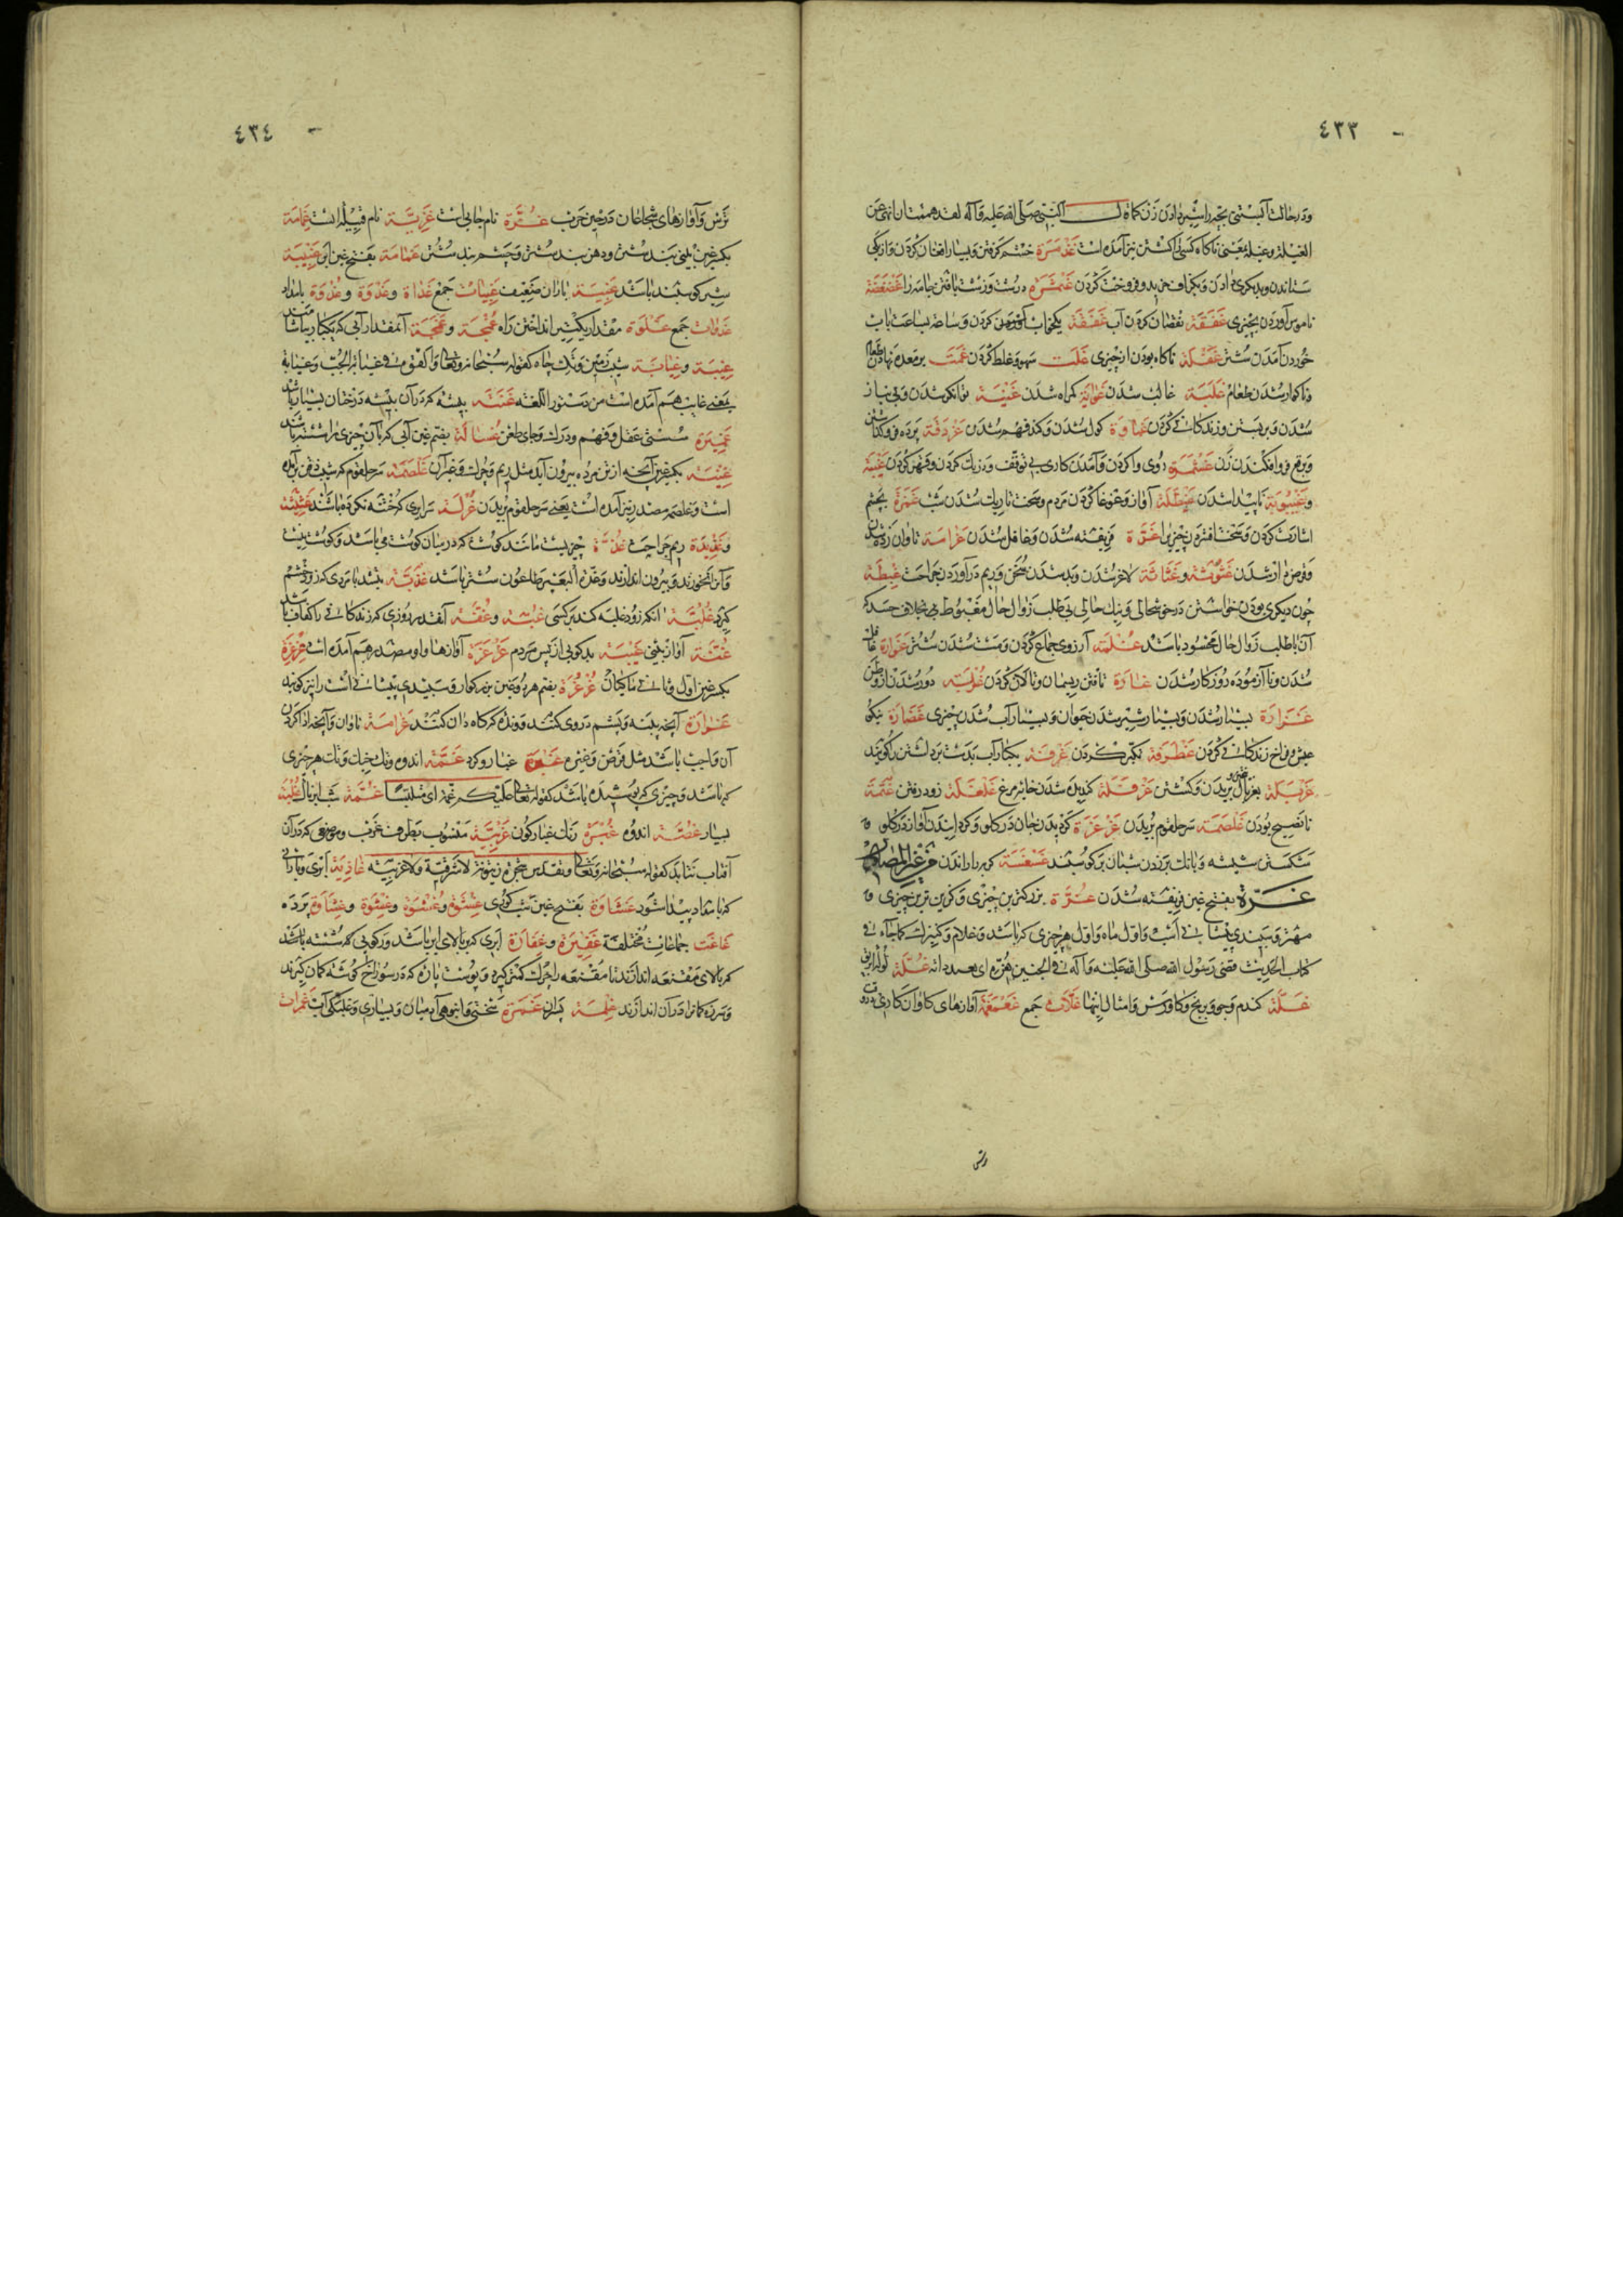 ٤٣٣
ودر حالت آبستنی بچه را شیر دادن زن کما قال النبی صلی الله علیه وآله لقد هممت ان انهی عن
الغیلة وغیلة بمعنی ناکاه کسی را کشتن نیز آمده است غذمرة خشم کرفتن وبسیار افغان کردن واز یکی
ستاندن وبدیکری دادن وبکزاف خریدن وفروختن کردن درشت وزشت بافتن جامه را
ناموس آوردن بچیزی غفقة نقصان کردن آب غفقة یکخواب کردن وساعت بساعت باب
خوردن آمدن شتر غفلة ناکاه بودن از چیزی غلت سهو وغلط کردن غمت بر معده نهادن طعام
وناکوار شدن طعام غلبة غالب شدن غوایة کمراه شدن غنیة توانکر شدن وبی نیاز
شدن وبر بستن وزندکانی کردن غباوة کول شدن وکند فهم شدن غردقة پرده فروکذاشتن
وبرقع فرو افکندن زن روی وا کردن وآمدن کاری بی توقف ودرنک کردن وقهر کردن غیبة
وغیبوبة ناپیدا شدن غیطلة آواز وغوغا کردن مردم وسخت تاریک شدن شب غمزة بچشم
اشارت کردن وسخت افشردن چیزی را غرة فریفته شدن وغافل شدن غرامة تاوان زده شدن
وقرض دار شدن غثوثة وغثاثة لاغر شدن وبد شدن سخن وریم در آوردن جراحت غبطة
چون دیکری بودن خواستن در خوشحالی ونیک حالی بی طلب زوال حال مغبوط بخلاف حسد که
آن با طلب زوال حال محسود باشد غلمة آرزوی جماع کردن ومست شدن شتر غرارة غافل
شدن ونا آزموده روزکار شدن غارة تافتن ریسمان وتالان کردن غربة دور شدن از وطن
غزارة بسیار شدن وبسیار شیر شدن حیوان وبسیار آب شدن چیزی غضارة نیکو
عیش وفراخ زندکانی کردن غطرفة تکبر کردن غرفة یکبار آب بدست برداشتن را کویند
غربلة بغربال بریدن وکشتن غرقلة کندیده شدن خایه مرغ غلغلة زود رفتن غتمة
نافصیح بودن غلصمة سر حلقوم بریدن غرغرة کردیدن جان در کلو وکردانیدن آواز در کلو
شکستن شیشه وبانک بر زدن شبان بر کوسفند غیر المصادر
غرة بفتح غین فریفته شدن غرة بزرکترین چیزی وکزین ترین چیزی
مهتر وسپیدی پیشانی اسب واول ماه واول هر چیزی که باشد وغلام وکنیزک کما جاء فی
کتاب الحدیث قضی رسول الله صلی الله علیه وآله فی الجنین بغرة ای بعبد او امة
غلة کندم وجو وبرنج وکاورس وامثال اینها غلات جمع غمغمة آوازهای کاوان کارزاری در وقت
ترسی
٤٣٤
ترس وآوازهای شجاعان در حین حرب غرة نام جایی است غزیة نام قبیله است غمامة
بکسر غین بینی بند شتر ودهن بند شتر وچشم بند شتر غمامة بفتح غین ابر غبیبة
شیر کوسفند باشد غبیة باران ضعیف غبیات جمع غداة وغدوة وغدوة بامداد
غدوات جمع غلوة مقدار یک تیر انداختن راه غمجة وغمجة آنمقدار آبی که بیکبار بیاشامند
غیبة وغیابة شیب زمین وتک چاه کقوله سبحانه وتعالی والقوه فی غیابة الجب وغیابة
بمعنی غایب هم آمده است من دستور اللغه غیضة بیشه که در آن بیشه درختان بسیار باشد
غمیزة سستی عقل وفهم ودرک وجای طعن غسالة بضم غین آبی که با آن چیزی را شسته باشند
غیبة بکسر غین آنچه از تن مرده بیرون آید مثل ریم وچرک وغیر آن غلصمة سر حلقوم که شیب ذقن برآمده
است وغلصمة مصدر نیز آمده است یعنی سر حلقوم بریدن غرلة سرایری که ختنه نکرده باشند غثیثة
وغذیذة ریم جراحت غدة چیزیست مانند کوشت که در میان کوشت می باشد وکوشت نیست
وآنرا نخورند وبیرون اندازند وغدة البعیر طاعون شتر باشد غضبة بتشدید با مردی که زود خشم
کیرد غلبة آنکه زود غلبه کند بر کسی غبیة وغفة آنقدر روزی که زندکانی را کفاف باشد
غنة آواز بینی غیبة بدکویی از پس مردم غرغرة آوازها واو مصدر هم آمده است غرغرة
بکسر غین اول وثانی ماکیان غرغرة بضم هر دو غین بزرکوار وسپیدی پیشانی است را نیز کویند
غرارة آنچه پنبه وپشم در وی کنند وونده که کاه دان کنند غرامة تاوان وآنچه ادا کردن
آن واجب باشد مثل قرض وغیره غبرة غبار وکرد غمة اندوه وتنک خیک وتنک هر چیزی
که باشد وچیزی که پوشیده باشد کقوله تعالی علیکم غمة ای ملتبسا
بسیار غصة اندوه غبرة رنک غبار کون غربیة منسوب بطرف غرب وموضعی که در آن
آفتاب نتابد کقوله سبحانه وتعالی وتقدس شجرة زیتونة لا شرقیة ولا غربیة غادیة ابری وبارانی
که بامداد پیدا شود غشاوة بفتح غین شب کوری غشوة وغشوة وغشوة وغشاوة پرده
غاغت جماعات مختلفة غفیرة وغفارة ابری که بر بالای ابر باشد ورکویی که شسته باشد
که بر بالای مقنعه اندازند تا مقنعه را چرک کمتر کیرد وپوست پاره که در سوراخ کوشه کمان کیرند
وسر زه کمانرا در آن اندازند غلمة پسران غمرة سختی وانبوهی آدمیان وبسیاری وغلبکی آب غمرات